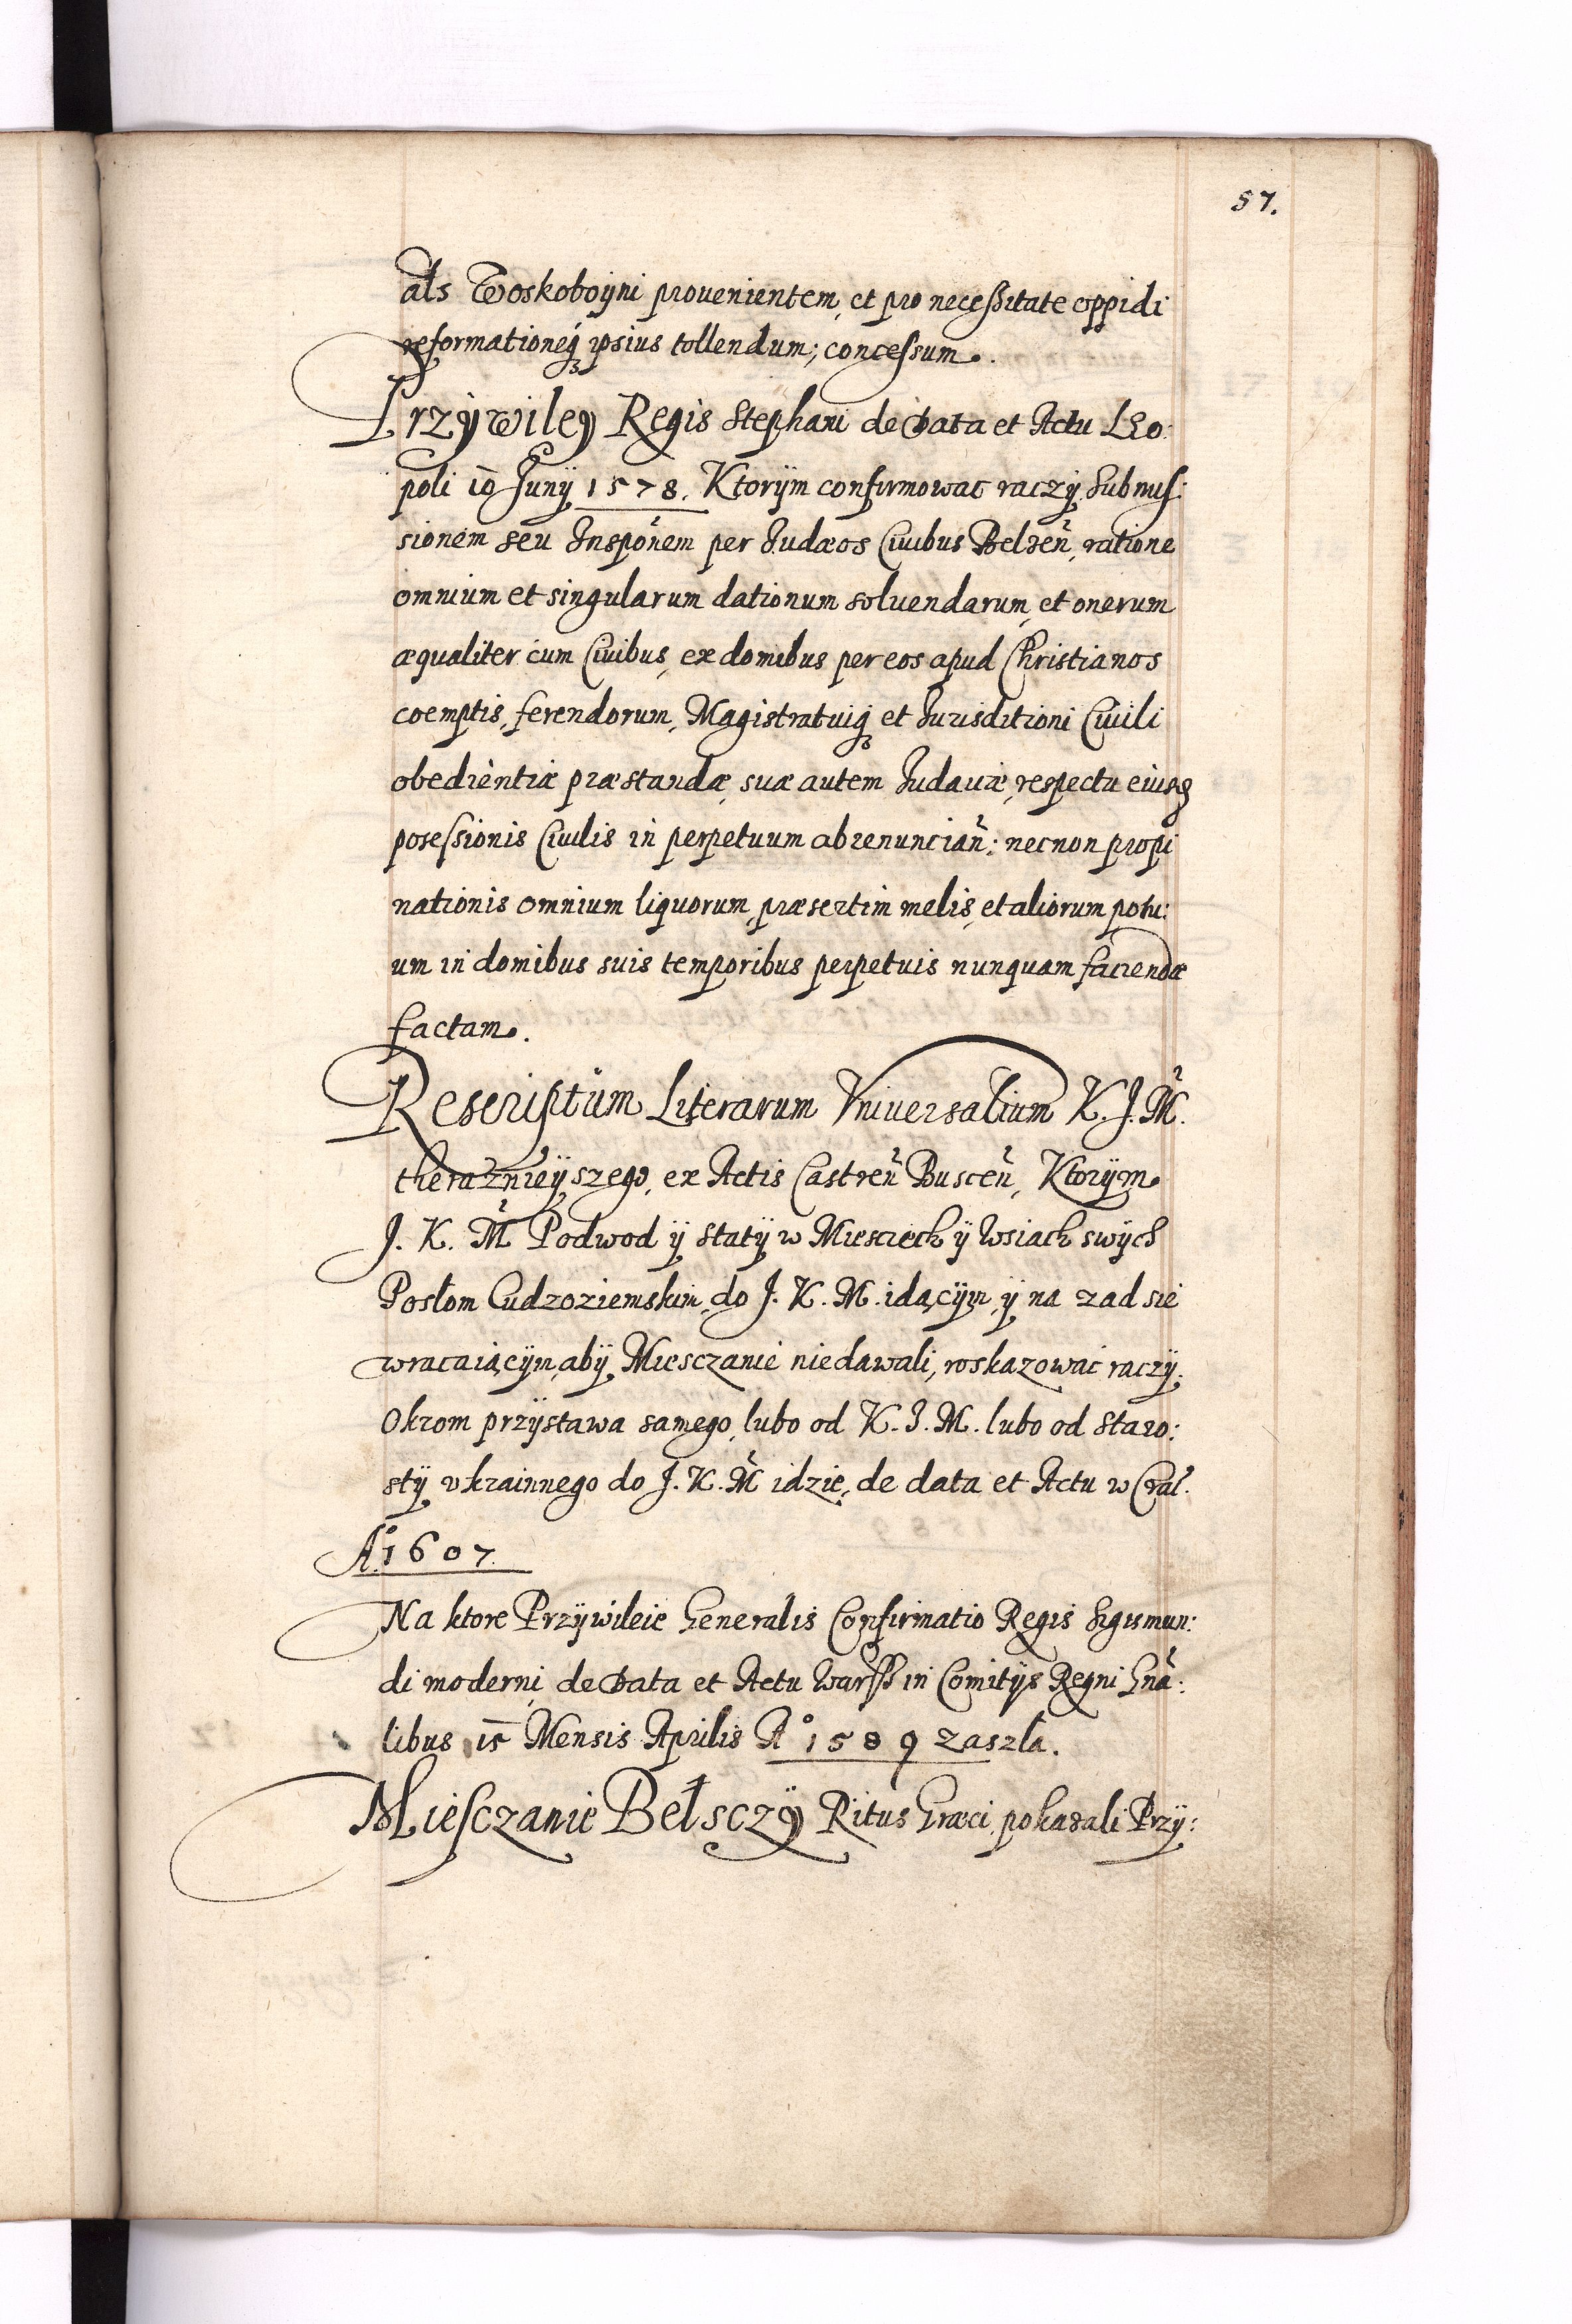 57.
als Woskoboyni prouenientem, et pro necessitate oppidi
reformationéq ipsius tollendum; concessum.
Przÿwiley Regis Stephani de Data et Actu Leo:
poli 10 Junÿ 1578. Ktorÿm confirmowac raczÿ Submis:
sionem seu Inspõnem per Iudæos Ciuibus Belzeñ, ratione
omnium et singularum dationum soluendarum, et onerum
æqualiter cum Ciuibus, ex domibus per eos apud Christianos
coemptis, ferendorum, Magistratuiq et Iurisditioni Ciuili
obedientiæ præstandæ, suæ autem Iudaicæ, respectu eiusd
posessionis Ciuilis in perpetuum abrenunciañ: necnon propi
nationis omnium liquorum, præsertim melis, et aliorum potu:
um in domibus suis temporibus perpetuis nunquam faciendæ
factam.
Rescriptum Literarum Vniuersalium K. J. M.
theraznieÿszego, ex Actis Castreñ Busceñ, Ktorÿm
J. K. M Podwod ÿ statÿ w Miesciech ÿ Wsiach swÿch
Posłom Cudzoziemskim, do J. K. M. idącÿm, ÿ na zad sie
wracaiącÿm, abÿ Miesczanie niedawali, roskazowac raczÿ.
Okrom przÿstawa samego, lubo od K. J. M. lubo od Staro:
stÿ vkrainnego do J. K. M idzie, de data et Actu w Crac.
A° 1607.
Na ktore Przÿwileie Generalis Confirmatio Regis Sigismun:
di moderni, de Data et Actu Warss in Comitÿs Regni Gñа:
libus 15 Mensis Aprilis A° 1589 zaszła.
Miesczanie Bełsczÿ Ritus Græci, pokazali Przÿ: